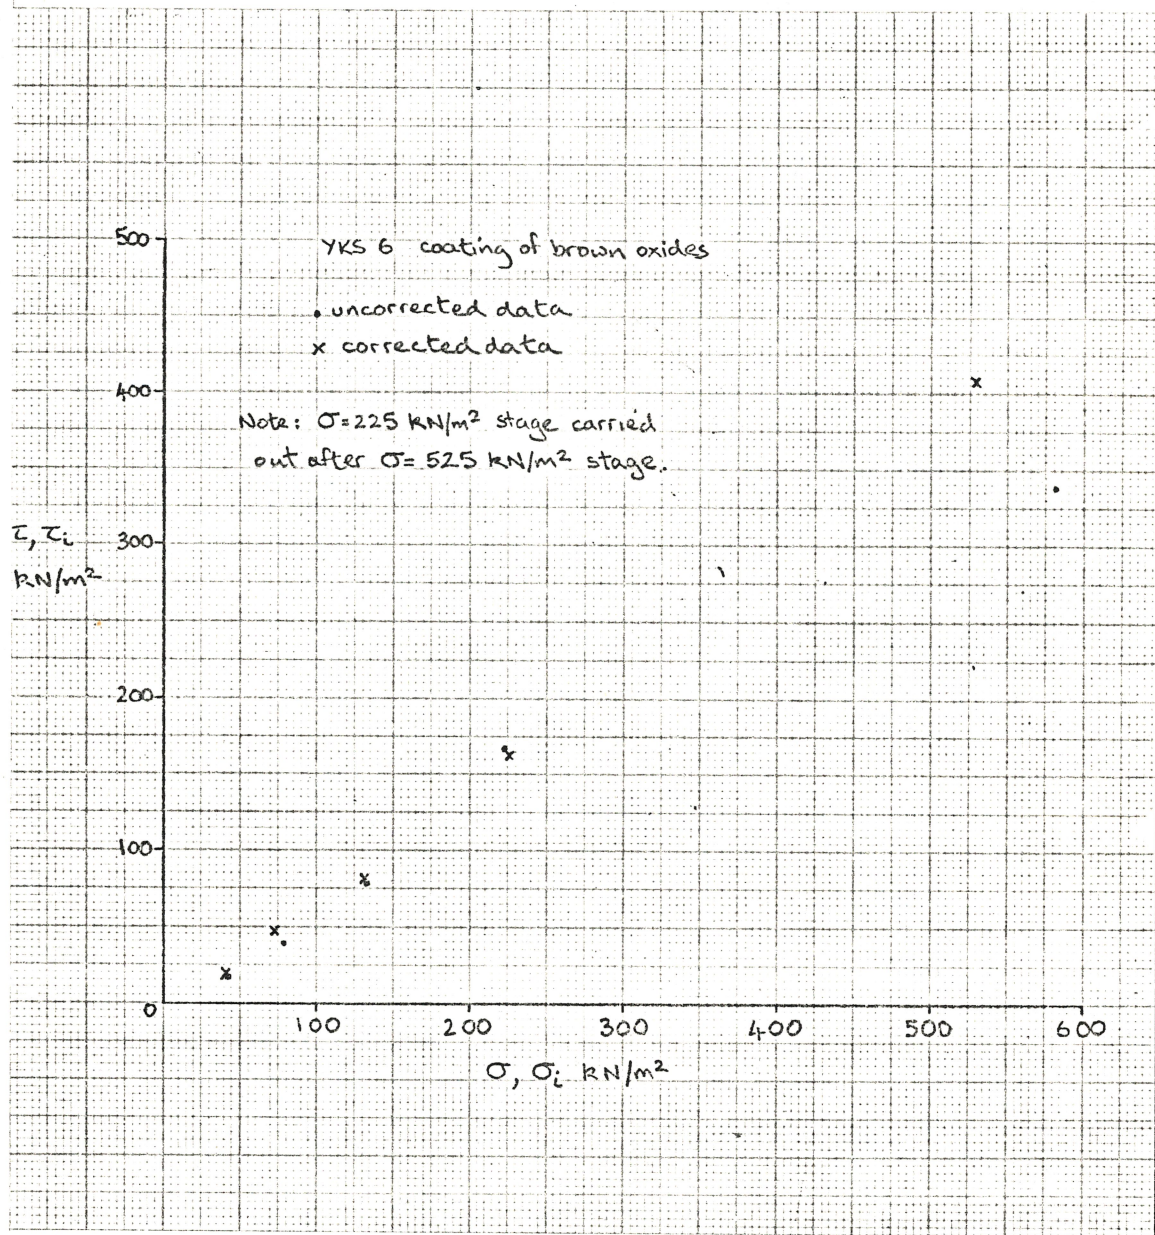 500
YKS 6 coating of brown oxides
• uncorrected data
x corrected data
400
Note: σ=225 kN/m² stage carried
out after σ= 525 kN/m² stage.
τ, τᵢ
kN/m²
300
200
100
0
100 200 300 400 500 600
σ, σᵢ kN/m²